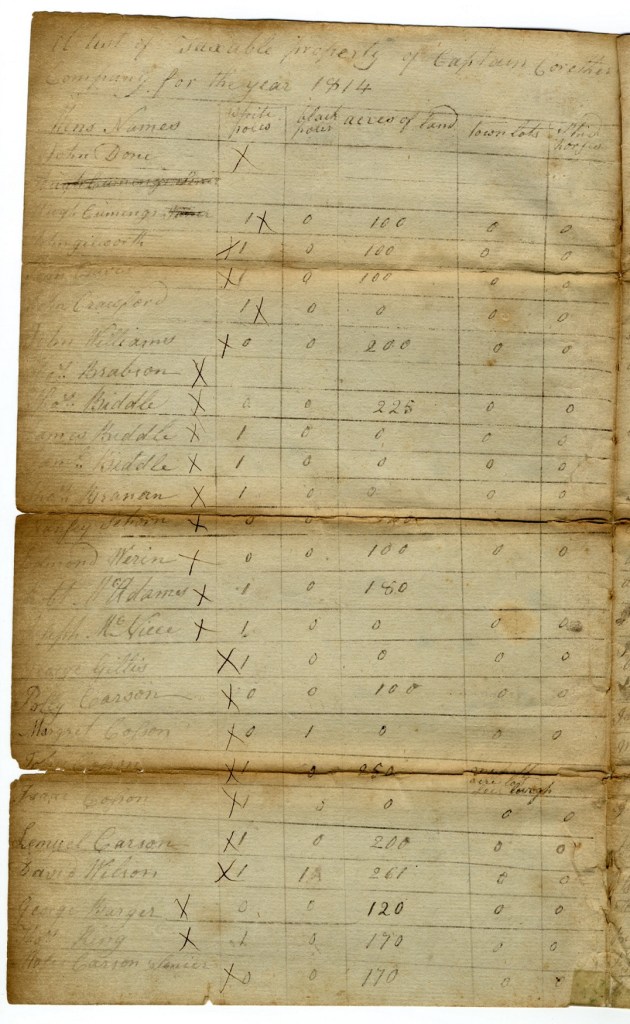 A list of taxable property of Captain
Company for the year 1814
Mens Names white poles black poles acres of land town lots Stud horses
John Done X
Hugh Cumings 1 X 0 100 0 0
X 1 0 100 0 0
X 1 0 100 0 0
John Crawford 1 X 0 0 0 0
John Williams X 0 0 200 0 0
Thos. Brabson X
Thos. Biddle X 0 0 225 0 0
James Biddle X 1 0 0 0 0
Saml. Biddle X 1 0 0 0 0
Thos. Branan X 1 0 0 0 0
X 0 0
Edmond X 0 0 100 0 0
McAdams X 1 0 180
Joseph X 1 0 0 0 0
George Gillis X 1 0 0 0 0
Polly Carson X 0 0 100 0 0
Margret X 0 1 0 0 0
X 1 0 250
X 1 0 0 0 0
Lemuel Carson X 1 0 200 0 0
David Wilson X 1 1 261 0 0
George Barger X 0 0 120 0 0
Thos. King X 1 0 170 0 0
Carson Senior X 0 0 170 0 0